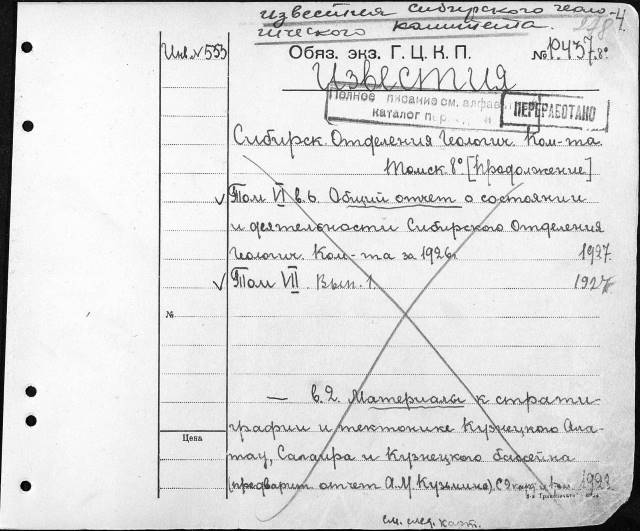 Известия Сибирского геоло-
гического комитета.
4.
Инв. N 553
Обяз. экз. Г. Ц. К. П.
№ Р.437 8°
Известия
Полное писание см. алфав
каталог
ПЕРЕРАБОТАНО
Сибирск. Отделения Геологич. Ком-та.
Томск. 8° [Продолжение]
Том VI в. 6. Общий отчет о состоянии
и деятельности Сибирского Отделения
Геологич. Ком-та за 1926г. 1927.
Том VII. Вып. 1. 1927
№
— в. 2. Материалы к страти-
графии и тектонике Кузнецкого Ала-
Цена
тау, Салаира и Кузнецкого бассейна
(предварит. отчет А. М. Кузьмина). С 2 карт.
см. след. карт.